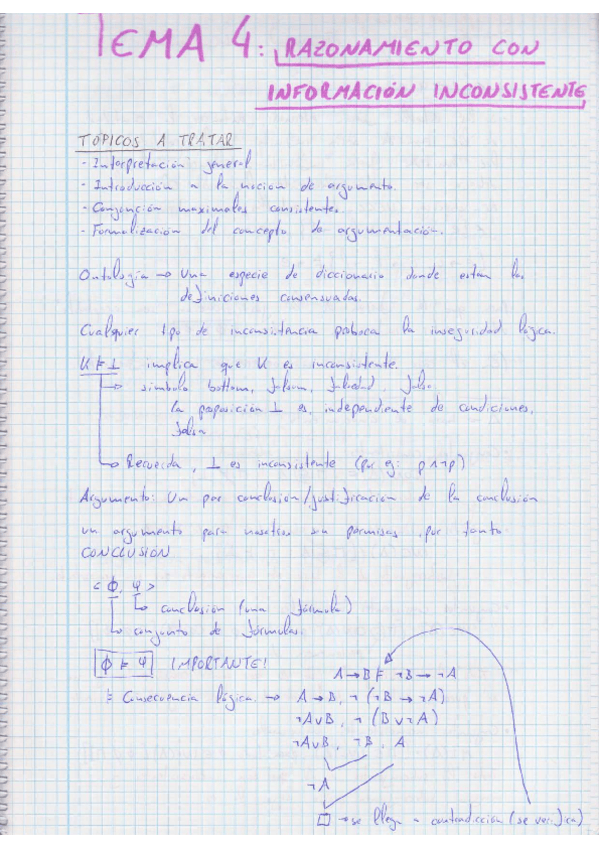 TEMA 4: RAZONAMIENTO CON
INFORMACIÓN INCONSISTENTE
TÓPICOS A TRATAR
- Interpretación general
- Introducción a la noción de argumento.
- Conjunción maximales consistente.
- Formalización del concepto de argumentación.
Ontología → Una especie de diccionario donde estan las
definiciones consensuadas.
Cualquier tipo de inconsistencia proboca la inseguridad lógica.
K ⊧ ⊥ implica que K es inconsistente.
símbolo bottom, falsum, falsedad, falso
la proposición ⊥ es, independiente de condiciones,
falsa
Recuerda, ⊥ es inconsistente (por ej: p ∧ ¬p)
Argumento: Un par conclusión/justificación de la conclusión
un argumento para nosotros son permisas, por tanto
CONCLUSIÓN
< Φ, Ψ >
conclusión (una fórmula)
conjunto de fórmulas.
Φ ⊧ Ψ ¡IMPORTANTE!
A → B ⊧ ¬B → ¬A
⊧ Consecuencia lógica → A → B, ¬(¬B → ¬A)
¬A∨B, ¬(B∨¬A)
¬A∨B, ¬B, A
¬A
□ → se llega a contradicción (se verifica)